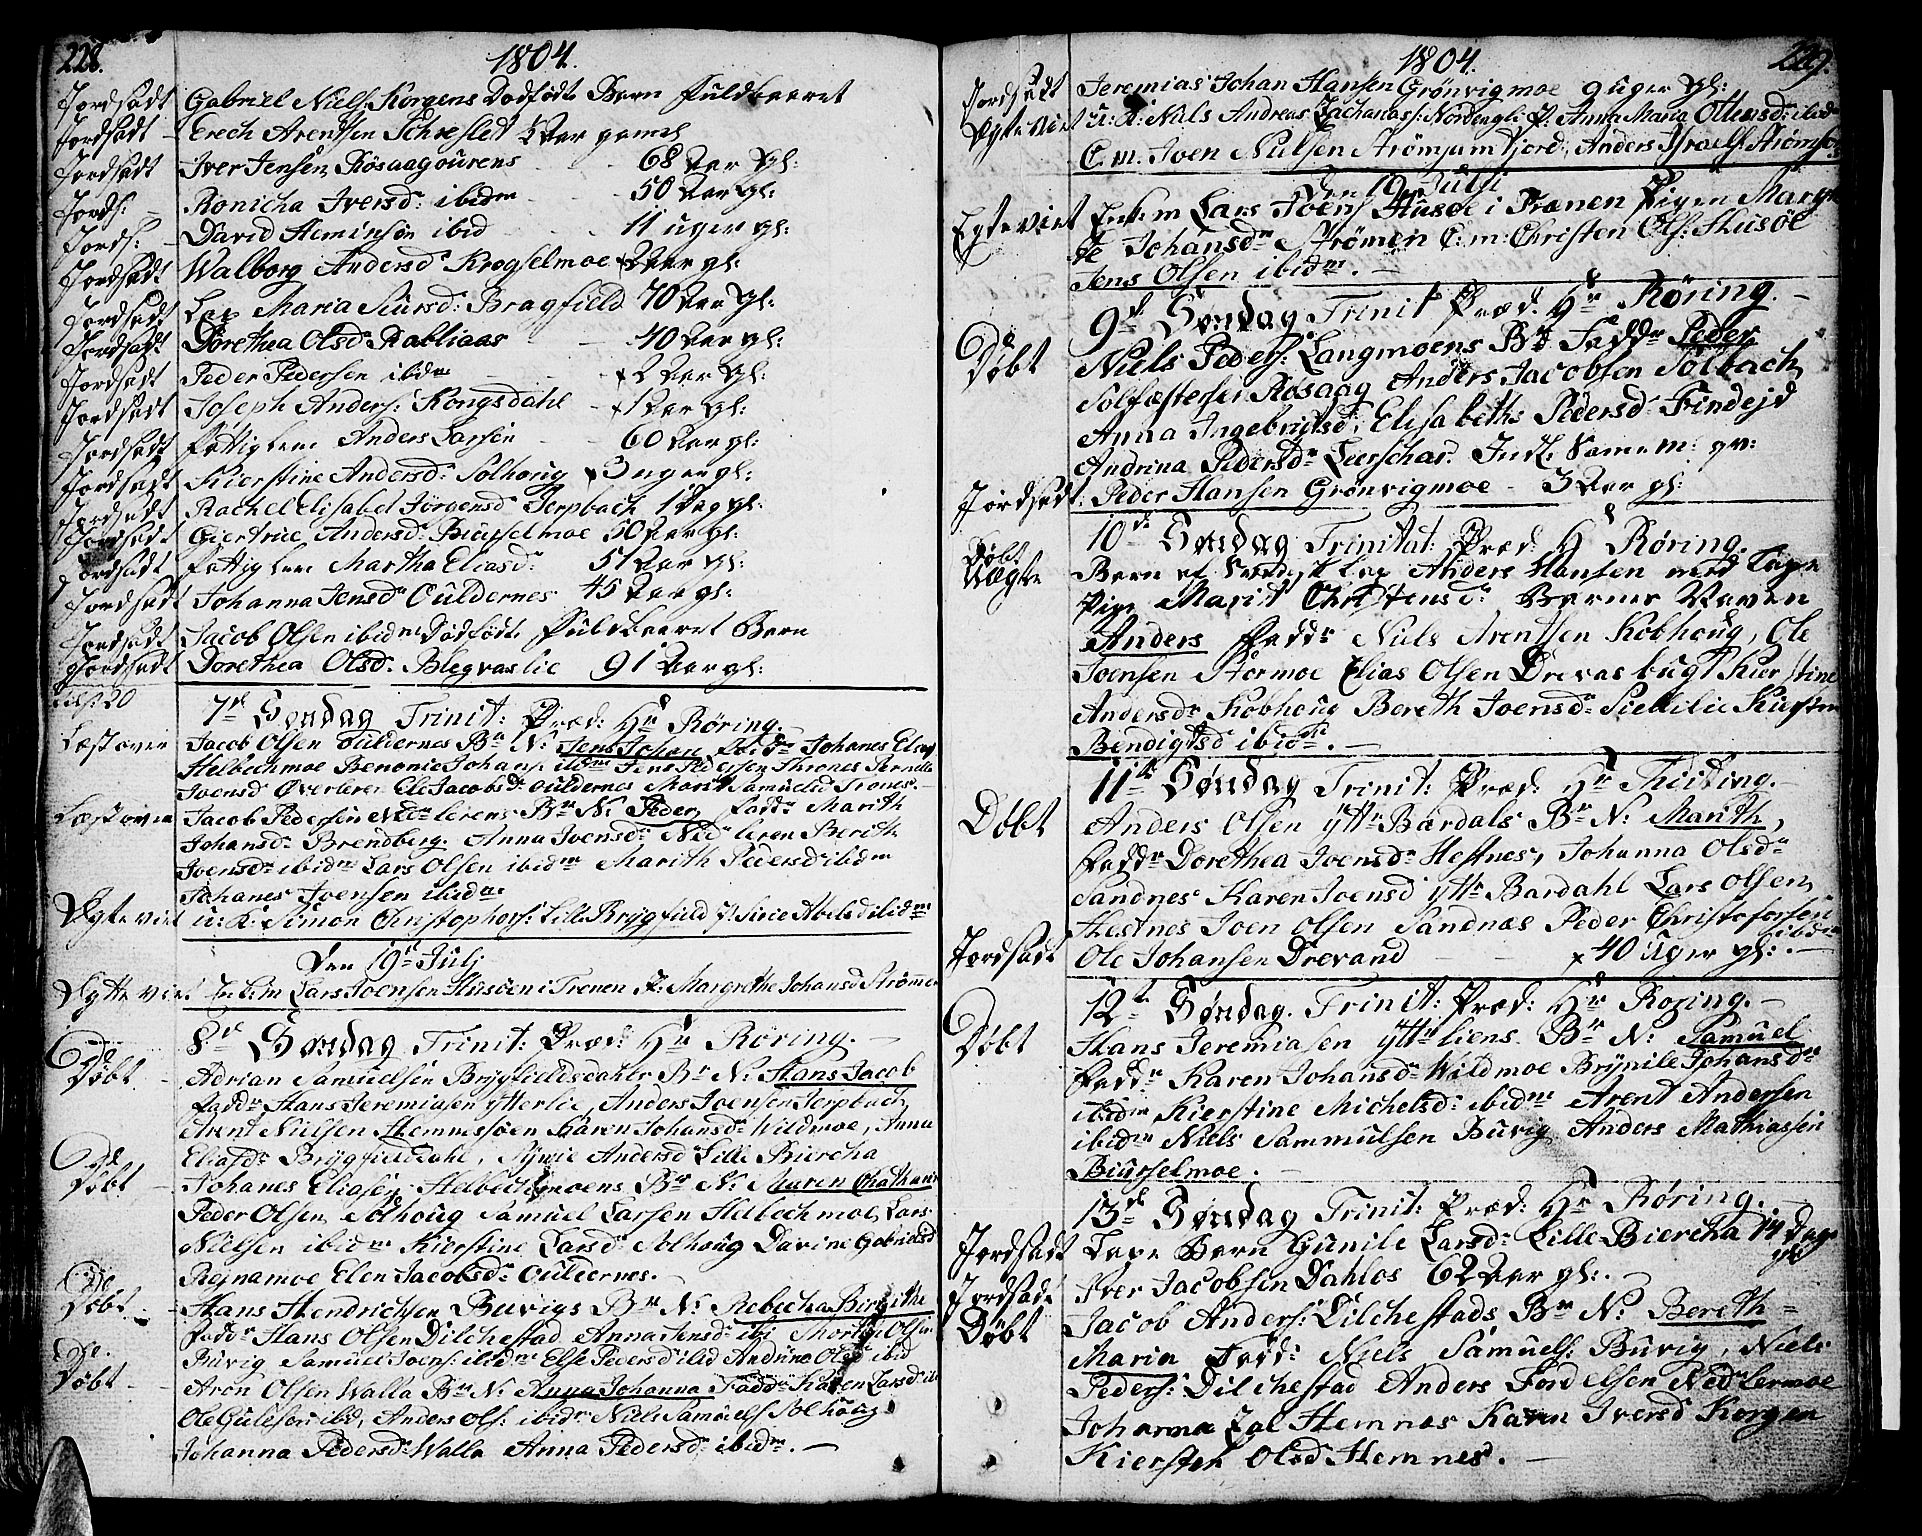 228.
1804.
Jordfadt Gabriel Niels: Korgens Dødfødte Barn Fuldbaaret
Jordfadt Erech Arentsen Aar gamel
Jordfadt Iver Jensen Røsaagourens 68 Aar gl:
Jords: Ronicha Iversd: ibidm 50 Aar gl:
Jords: David Heminsøn ibid 11 uger gl:
Jordfadt Walborg Andersd: Krogselmoe Aar gl:
Jordfadt Lap Maria Siursd: Bragfield 70 Aar gl:
Jordfadt Dorethea Olsd: Rabliaas 40 Aar gl:
Jordfadt Peder Pedersen ibidm 2 Aar gl:
Jordfadt Joseph Anders: Kongsdahl 1 Aar gl:
Jordfadt Fattiglem Anders Larsen 60 Aar gl:
Jordfadt Kierstine Andersd: Solhoug 3 uger gl:
Jordfadt Rachel Elisabet Jørgensd Jerpbach 1 Dag gl:
Jordfadt Giertrue Andersd: Biurselmoe 50 Aar gl:
Jordfadt Fattiglem Martha Eliasd: 51 Aar gl:
Jordfadt Johanna Jensd: Ouldernes 45 Aar gl:
Jordfadt Jacob Olsen ibidm Dødfødte Fuldbaaret Barn
Jordfadt Dorethea Olsd: Blegvaslie 91 Aar gl:
20
7de Søndag Trinit: Præd: Hr Røring.
Læst over Jacob Olsen Ouldernes Bn N: Jens Johan Fadr Johanes Elias
Helbechmoe Benonie Johans: ibidm Jens Pedersen Thrones Pernelle
Joensd Øverleren Ele Jacobsd: Ouldernes Marit Samuelsd Trones.
Læst over Jacob Pedersen Nedr lerens Bn N: Peder, Fadr Marith
Johansd: Brendberg, Anna Joensd: Nedr leren Berith
Joensd: ibidm Lars Olsen ibidm Marith Pedersd ibidm
Johanes Joensen ibidm
Ægte viet u: K: Simon Christophers: Lille Brygfield P. Sirie Abelsd ibidm
Den 19de Julj
Ægte viet Enkem Lars Joensen Husøen i Trenen P. Margrethe Johansd Strømmen
8de Søndag Trinit: Præd: Hr Røring.
Døbt Adrian Samuelsen Brygfieldsdahls Bn N: Hans Jacob
Fadr Hans Jeremiasen Ytterlie, Anders Joensen Jerpbach,
Arent Nielsen Hemnesøen Karen Johansd: Wildmoe, Anna
Eliasd: Brygfieldahl, Synnie Andersd Lille Biercha
Døbt Johanes Eliasen Helbechmoens Bn N: Maren Chatharin
Peder Olsen Solhoug Samuel Larsen Helbechmoe, Lars
Nielsen ibidm Kierstine Larsd: Solhoug Davine Gabrielsd
Røgnamoe Elen Jacobsd: Ouldernes.
Døbt Hans Hendrichsen Buvigs Bn N: Rebecha Birgithe
Fadr Hans Olsen Dilchestad Anna Jensd: ibi Morten Olsen
Buvig Samuel Joens: ibidm Else Pedersd ibid Andrina Olsd ibid
Døbt Aron Olsen Walla Bn N: Anna Johanna Fadr Karen Larsd ib
Ole Gulesen ibd, Anders Ols: ibidm Niels Samuels Solhoug
Johanna Pedersd: Walla Anna Pedersd: ibidm.
1804.
229.
Jordfadt Jeremias Johan Hansen Grønvigmoe 9 uger gl:
Ægte viet u: K: Niels Andreas Zachariass: Nordengh P. Anna Maria Ottersd: ibidm
C. m. Joen Nielsen Strømsum Anders Israels: Strømsom
Den 19de Julji
Egte viet Enkem Lars Joens Husøe i Trænen Pigen Margre
te Johansd: Strømen C: m: Christen Ols: Husøe
Jens Olsen ibidm.
9de Søndag Trinit Præd: Hr Røring.
Døbt Niels Peders: Langmoens Bn Fadr Peder
Solfæstersen Røsaag Anders Jacobsen Solbach
Anna Ingebrigtsd: Elisabeths Pedersd Findejd
Andrina Pedersd: Leerschar. Introd. Samme m: gr:
Jordfadt: Peder Hansen Grønvigmoe 3 Aar gl:
10de Søndag Trinitat: Præd: Hr Røring.
Døbt Uægte Barn af Lap Anders Hansen med Lappe
Pige Marit Christensd: Barnes Navn
Anders Fadr Niels Arentsen Kobhoug, Ole
Joensen Stormoe Elias Olsen Drevasbugt Kierstine
Andersd: Kobhoug Bereth Joensd: Kirsten
Bendigtsd ibidm.
11te Søndag Trinit: Præd: Hr Heiting.
Døbt Anders Olsen yttr Bardals Bn N: Marith,
Fadr Dorethea Joensd: Hestnes, Johanna Olsd:
Sandnes Karen Joensd yttr Bardahl Lars Olsen
Hestnes Joen Olsen Sandnæs Peder Christofersen
ibidm
Jordfadt Ole Johansen Drevand 40 Uger gl:
12te Søndag Trinit: Præd: Hr Røring.
Døbt Hans Jeremiasen Ytterliens Bn N: Samuel
Fadr Karen Johansd: Wildmoe Brynile Johansd:
ibidm Kierstine Michelsd: ibidm Arent Andersen
ibidm Niels Sammulsen Buvig Anders Mathiassen
Biurselmoe.
13de Søndag Trinit: Præd: Hr Røring.
Jordfadt Lape Barn Gunile Larsd: Lille Biercha 14 Dage
gl
Jordfadt Iver Jacobsen Dahlos 62 Aar gl:
Døbt Jacob Anders: Dilchestads Bn N: Bereth
Maria Fadr: Niels Samuels: Buvig, Niels
Peders: Dilchestad Anders Fordelsen Nedr Lermoe
Johanna Zal Hemnes Karen Iversd Korgen
Kiersten Olsd Hemnes.